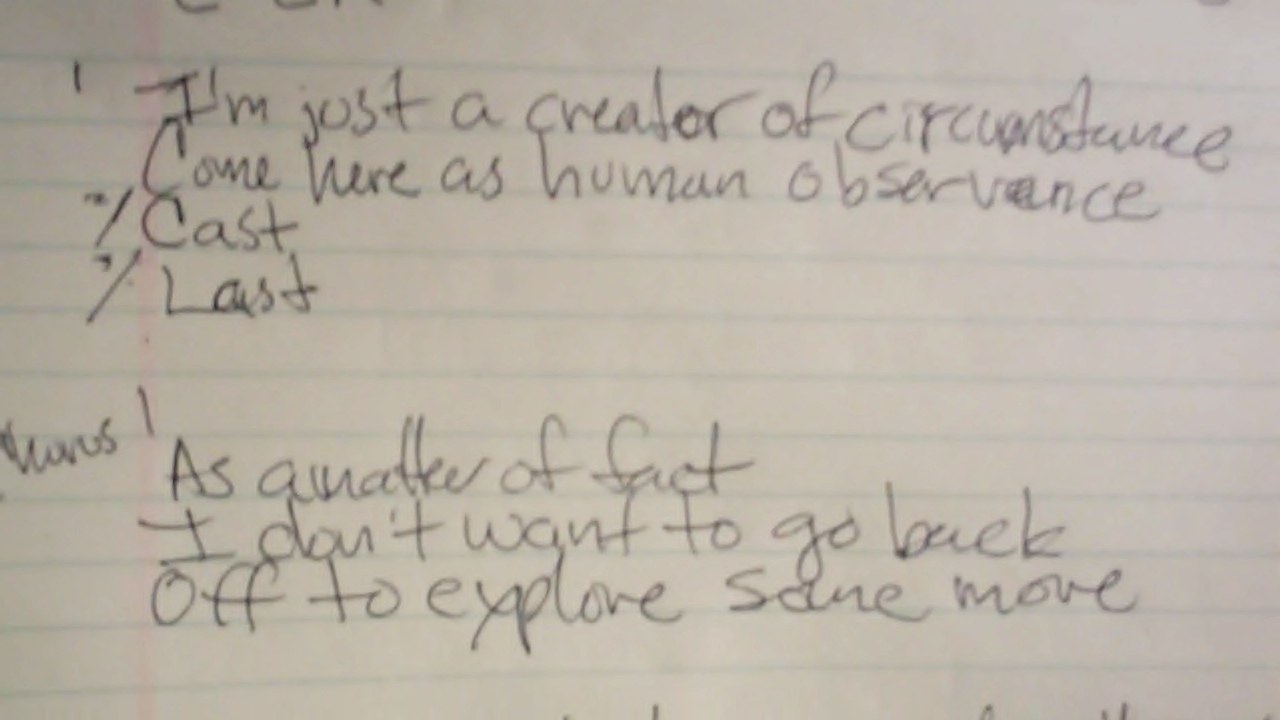 I'm just a creator of circumstance
Come here as human observance
"/ Cast
"/ Last
As a matter of fact
I don't want to go back
Off to explore some more